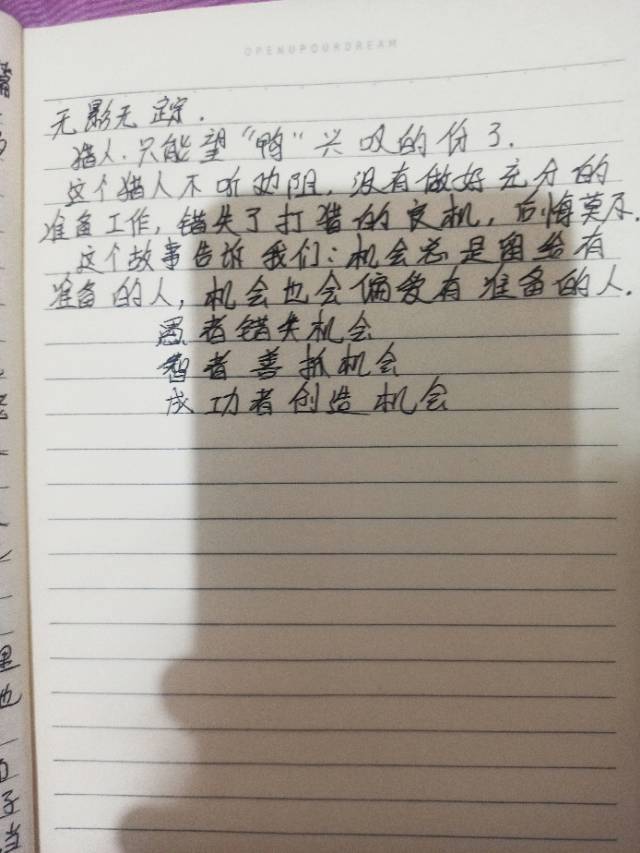 OPENUPOURDREAM
无影无踪.
猎人.只能望“鸭”兴叹的份了.
这个猎人不听劝阻,没有做好充分的
准备工作,错失了打猎的良机,后悔莫及.
这个故事告诉我们:机会总是留给有
准备的人,机会也会偏爱有准备的人.
愚者错失机会
智者善抓机会
成功者创造机会
里
也
子
当